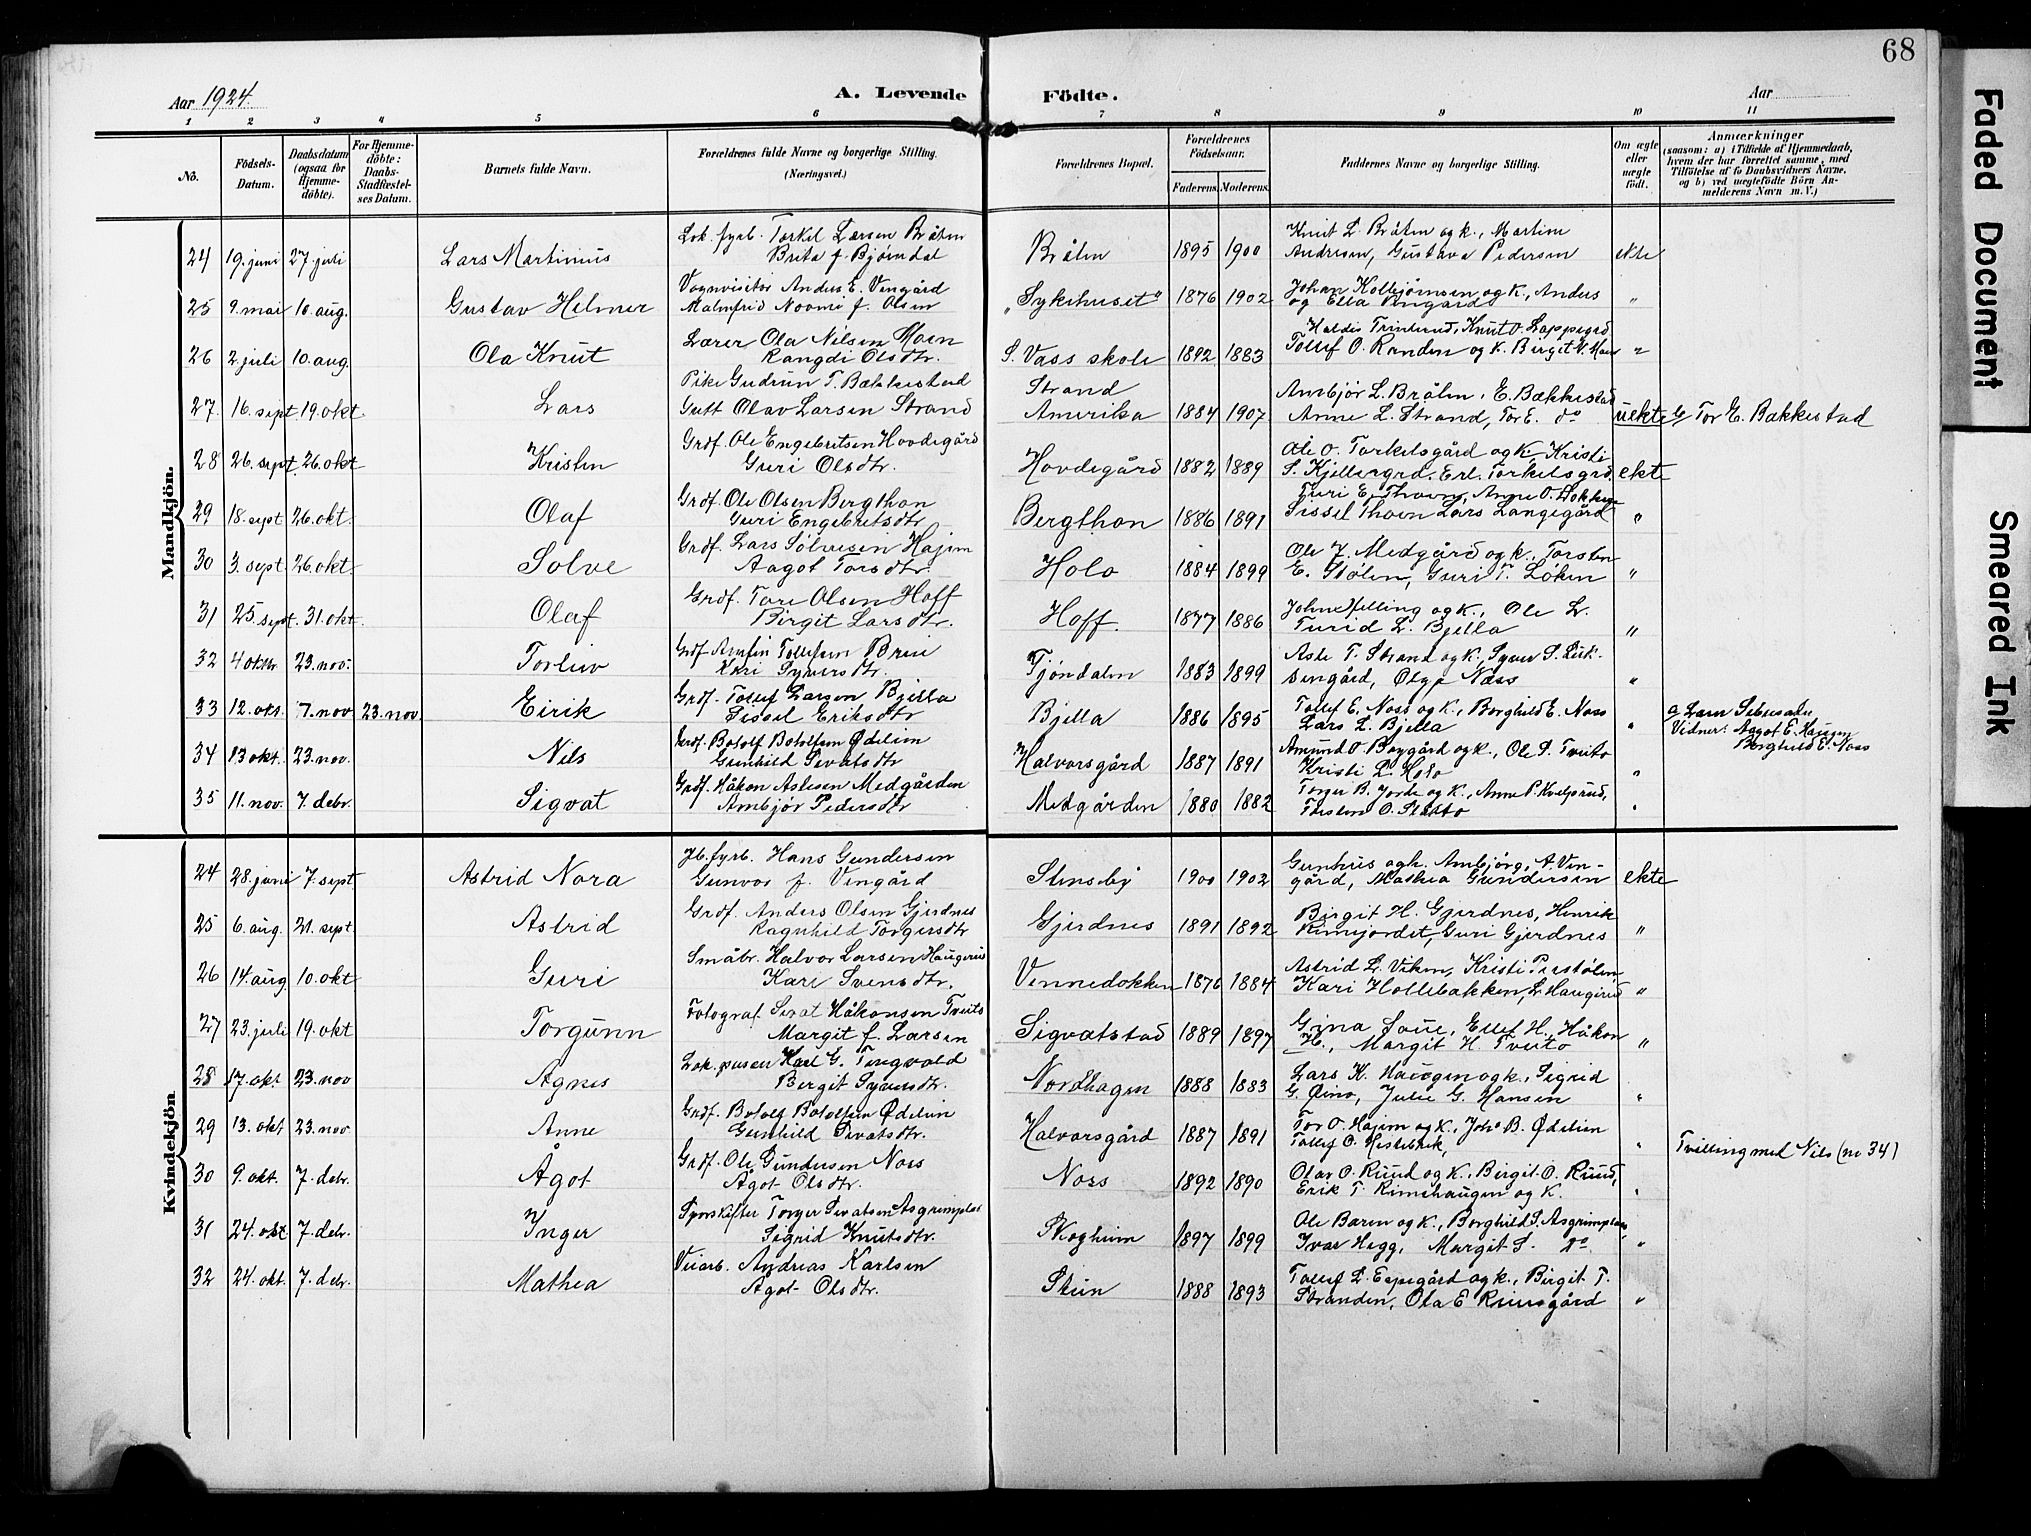 68
Aar 1924.
A. Levende Födte.
Aar
1 2 3 4 5 6 7 8 9 10 11
No.
Födsels-Datum.
Daabsdatum (ogsaa for Hjemme-döbte).
For Hjemme-döbte: Daabs-Stadfæstel-ses Datum.
Barnets fulde Navn.
Forældrenes fulde Navne og borgerlige Stilling. (Næringsvei.)
Forældrenes Bopæl.
Forældrenes Födselsaar.
Faderens. Moderens.
Faddernes Navne og borgerlige Stilling.
Om ægte eller uægte födt.
Anmærkninger
(saasom: a) i Tilfælde af Hjemmedaab,
hvem der har forrettet samme, med
Tilföielse af to Daabsvidners Navne,
og b) ved uægtefödte Börn An-
melderens Navn m. V.)
Mandkjön.
Lok. fyrb. Torkel Larsen Bråten
Knut L. Bråten og k., Martin
24 19. juni 27. juli Lars Martinius Brita f. Bjørndal Bråten 1895 1900 Andresen, Gustava Pedersen ekte
Vognvisitør Anders E. Vengård
Johan Kolbjørnsen og K., Anders
25 9. mai 10. aug. Gustav Helmer Malmfrid Noomi f. Olsen "Sykehuset" 1876 1902 og Ella Vengård "
Lærer Ola Nilsen Moen
Knut O. Lappegrd
26 2. juli 10. aug. Ola Knut Rangdi Olsdtr. S. Vass skole 1892 1883 Tollef O. Randen og K. Birgit N. Moen "
Pike Gudrun T. Bækkestad Strand
Ambjør L. Bråten, E. Bækkestad
27. 16. sept. 19. okt. Lars Gutt Olav Larsen Strand Amerika 1884 1907 Anne L. Strand, Tor E. do uekte Tor E. Bækkestad
Grdf. Ole Engebretsen Hovdegård
Ole O. Torkelsgård og K. Kristi
28 26. sept. 26. okt Kristen Guri Olsdtr. Hovdegård 1882 1889 S. Kjellergrd. Erl. Torkelsgrd ekte
Grdf. Ole Olsen Bergthon
Turi E. Thoen, Anne O. Dokken
29 18. sept 26. okt. Olaf Guri Engebretsdtr Bergthon 1886 1891 Sissel Thoen Lars Langegård "
Grdf. Lars Sølvesen Hajem
Ole J. Medgård og k., Torsten
30 3. sept. 26. okt. Solve Aagot Torsdtr. Holo 1884 1899 E. Stølen, Guri T. Løken "
Grdf. Tore Olsen Hoff
31 25. sept. 31. okt. Olaf Birgit Larsdtr. Hoff. 1877 1886 Turid L. Bjella "
Grdf. Arnfin Tollefsen Brui
Asle T. Strand og K., Syver S.
32 4 oktbr 23. nov. Torleiv Kari Syversdtr. Tjøndalen 1883 1899 Olga Næss "
Grdf. Tollef Larsen Bjella
Tollef E. Noss og K., Borghild E. Noss
33 12. okt. 7. nov 23. nov. Eirik Sissel Eriksdtr Bjella 1886 1895 Lars L. Bjella "
Vidner: Aagot E. Haugen
Borghild E. Noss
Grdf. Botolf Botolfsen Ødelien
Amund O. Baygård og k., Ole S. Tveito
34 13 okt. 23. nov. Nils Gunhild Sivatsdtr Halvorsgård 1887 1891 Kristi L. Holo "
Grdf. Håkon Aslesen Medgården
Torger B. Jorde og K., Anne P. Kvelprud,
35 11. nov. 7. debr. Sigvat Ambjør Pedersdtr Medgården 1880 1882 Torsten O. Sletto "
Kvindekjön
Jb. fyrb. Hans Gundersen
Gunhus og k. Ambjørg A. Ven-
24 28. juni 7. sept Astrid Nora Gunvor f. Vengård Stensby 1900 1902 gård, Mathea Gundersen ekte
Grdf. Anders Olsen Gjerdnes
Birgit H. Gjerdnes, Henrik
25 6. aug. 21. sept Astrid Ragnhild Torgersdtr Gjerdnes 1891 1892 Rimejordet, Guri Gjerdnes "
Småbr. Halvor Larsen Haugerud
Astrid L. Viken, Kristi Perstølen
26 14. aug. 10. okt Guri Kari Svensdtr. Vennedokken 1876 1884 Kari Hollebakken, L. Haugerud "
Fotograf Sivat Håkonsen Tveito
27 23. juli 19. okt Torgunn Margit f. Larsen Sigvatstad 1889 1897 H., Margit H. Tveito "
Lok. pusser Karl G. Tingvold
Lars K. Haugen og k., Sigrid
28 17. okt 23. nov Agnes Bergit Syversdtr. Nordhagen 1888 1883 G. Øino, Julie G. Hansen "
Grdf. Botolf Botolfsen Ødelien
Tor O. Hajem og K., Johs B. Ødelien
29 13. okt 23. nov Anne Gunhild Sivatsdtr. Halvorsgård 1887 1891 Tollef O. Hestebrek, " Tvilling med Nils (no 34)
Grdf. Ole Gundersen Noss
Olav O. Ruud og K., Birgit O. Ruud,
30 9. okt. 7. debr. Ågot Ågot Olsdtr. Noss 1892 1890 Erik T. Rimehaugen og K. "
Sporskifter Torger Sivatsen Asgrimplas
Ole Bæren og K., Borghild S. Asgrimplas
31 24. okt 7. debr. Inger Sigrid Knutsdtr. Skogheim 1897 1899 Ivar Hegg, Margit S. do "
Veiarb. Andreas Karlsen
Tollef L. Espegård og k., Birgit T.
32 24. okt. 7. debr. Mathea Agot Olsdtr. Stein 1888 1893 Stranden, Ola E Ruusgård "
Faded Document
Smeared Ink